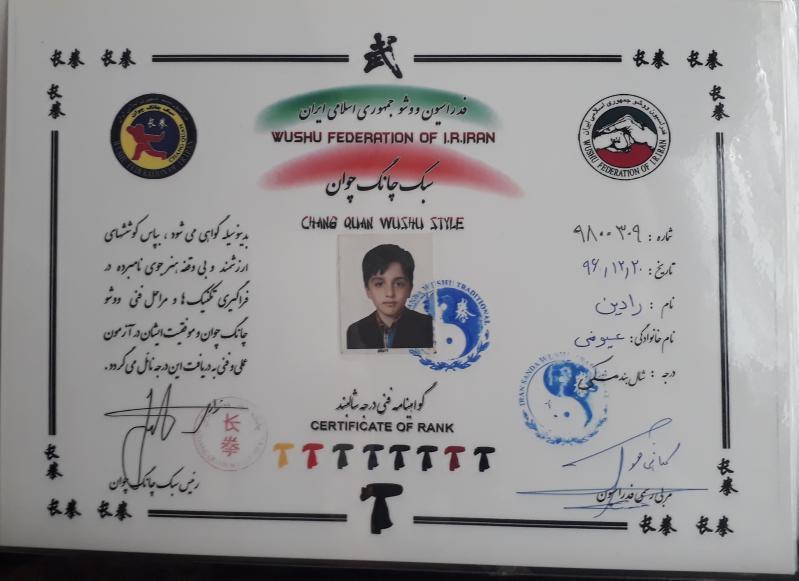 长拳 长拳 武 长拳 长拳
长拳 长拳
فدراسیون ووشو جمهوری اسلامی ایران
WUSHU FEDERATION OF I.R.IRAN
سبک چانگ چوان
CHANG QUAN WUSHU STYLE
سبک چانگ چوان
长拳
فدراسیون ووشو جمهوری اسلامی ایران
WUSHU FEDERATION OF I.R.IRAN
شماره : ۹۸۰۰۳۰۹
تاریخ : ۹۶/۱۲/۲۰
نام : رادین
نام خانوادگی : عیوضی
درجه : شال بند مشکی
بدینوسیله گواهی می شود ، بپاس کوششهای
ارزشمند و بی وقفه هنرجوی نامبرده در
فراگیری تکنیک ها و مراحل فنی ووشو
چانگ چوان و موفقیت ایشان در آزمون
عملی و فنی به دریافت این درجه نائل می گردد.
SANDA WUSHU TRADITIONAL
IRAN SANDA WUSHU
گواهینامه فنی درجه شالبند
CERTIFICATE OF RANK
长拳
رئیس سبک چانگ چوان
مربی رسمی فدراسیون
长拳 长拳
长拳 长拳 长拳 长拳